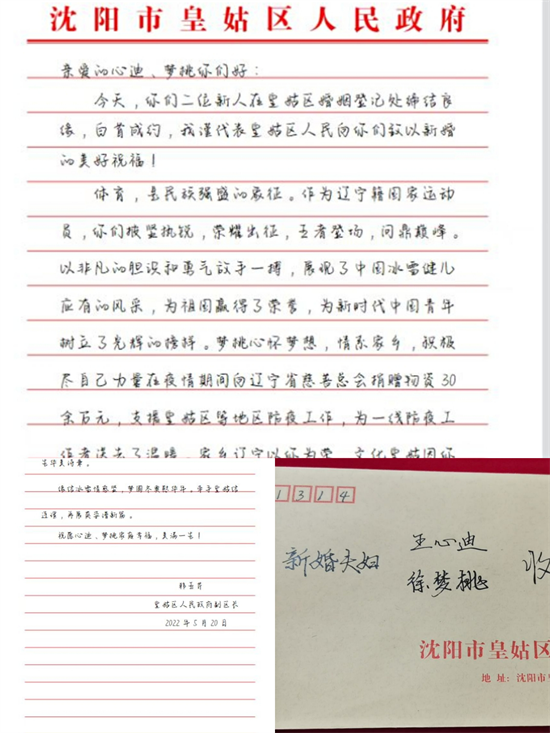 沈阳市皇姑区人民政府
亲爱的心迪、梦桃你们好：
今天，你们二位新人在皇姑区婚姻登记处缔结良
缘，白首成约，我谨代表皇姑区人民向你们致以新婚
的美好祝福！
体育，是民族强盛的象征。作为辽宁籍国家运动
员，你们披坚执锐，荣耀出征，王者登场，问鼎巅峰。
以非凡的胆识和勇气放手一搏，展现了中国冰雪健儿
应有的风采，为祖国赢得了荣誉，为新时代中国青年
树立了光辉的榜样。梦桃心怀梦想，情系家乡，积极
尽自己力量在疫情期间向辽宁省慈善总会捐赠物资30
余万元，支援皇姑区等地区防疫工作，为一线防疫工
作者送去了温暖，家乡辽宁以你为荣，文化皇姑因你
美满。
冰雪情
祝愿心迪、梦桃家庭幸福，美满一生！
皇姑区人民政府副区长
2022年5月20日
1314
新婚夫妇
王心迪
徐梦桃
收
沈阳市皇姑区
地址：沈阳市